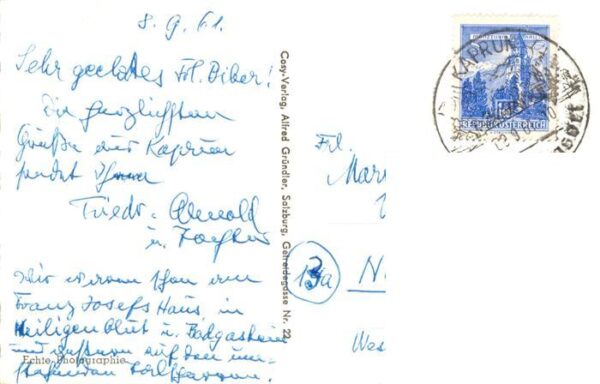 8.9.61.
Sehr geehrtes Frl. Biber!
Die herzlichsten
Grüße aus Kaprun
sendet Ihnen
Friedr.
u.
Wir waren schon im
Franz Josefs Haus, in
Heiligenblut u. Badgastein
und auf den
Echte Photographie
Cosy-Verlag, Alfred Gründler, Salzburg, Getreidegasse Nr. 22
KAPRUN
REPUBLIK ÖSTERREICH
Frl.
Mar
13a
N
Wes